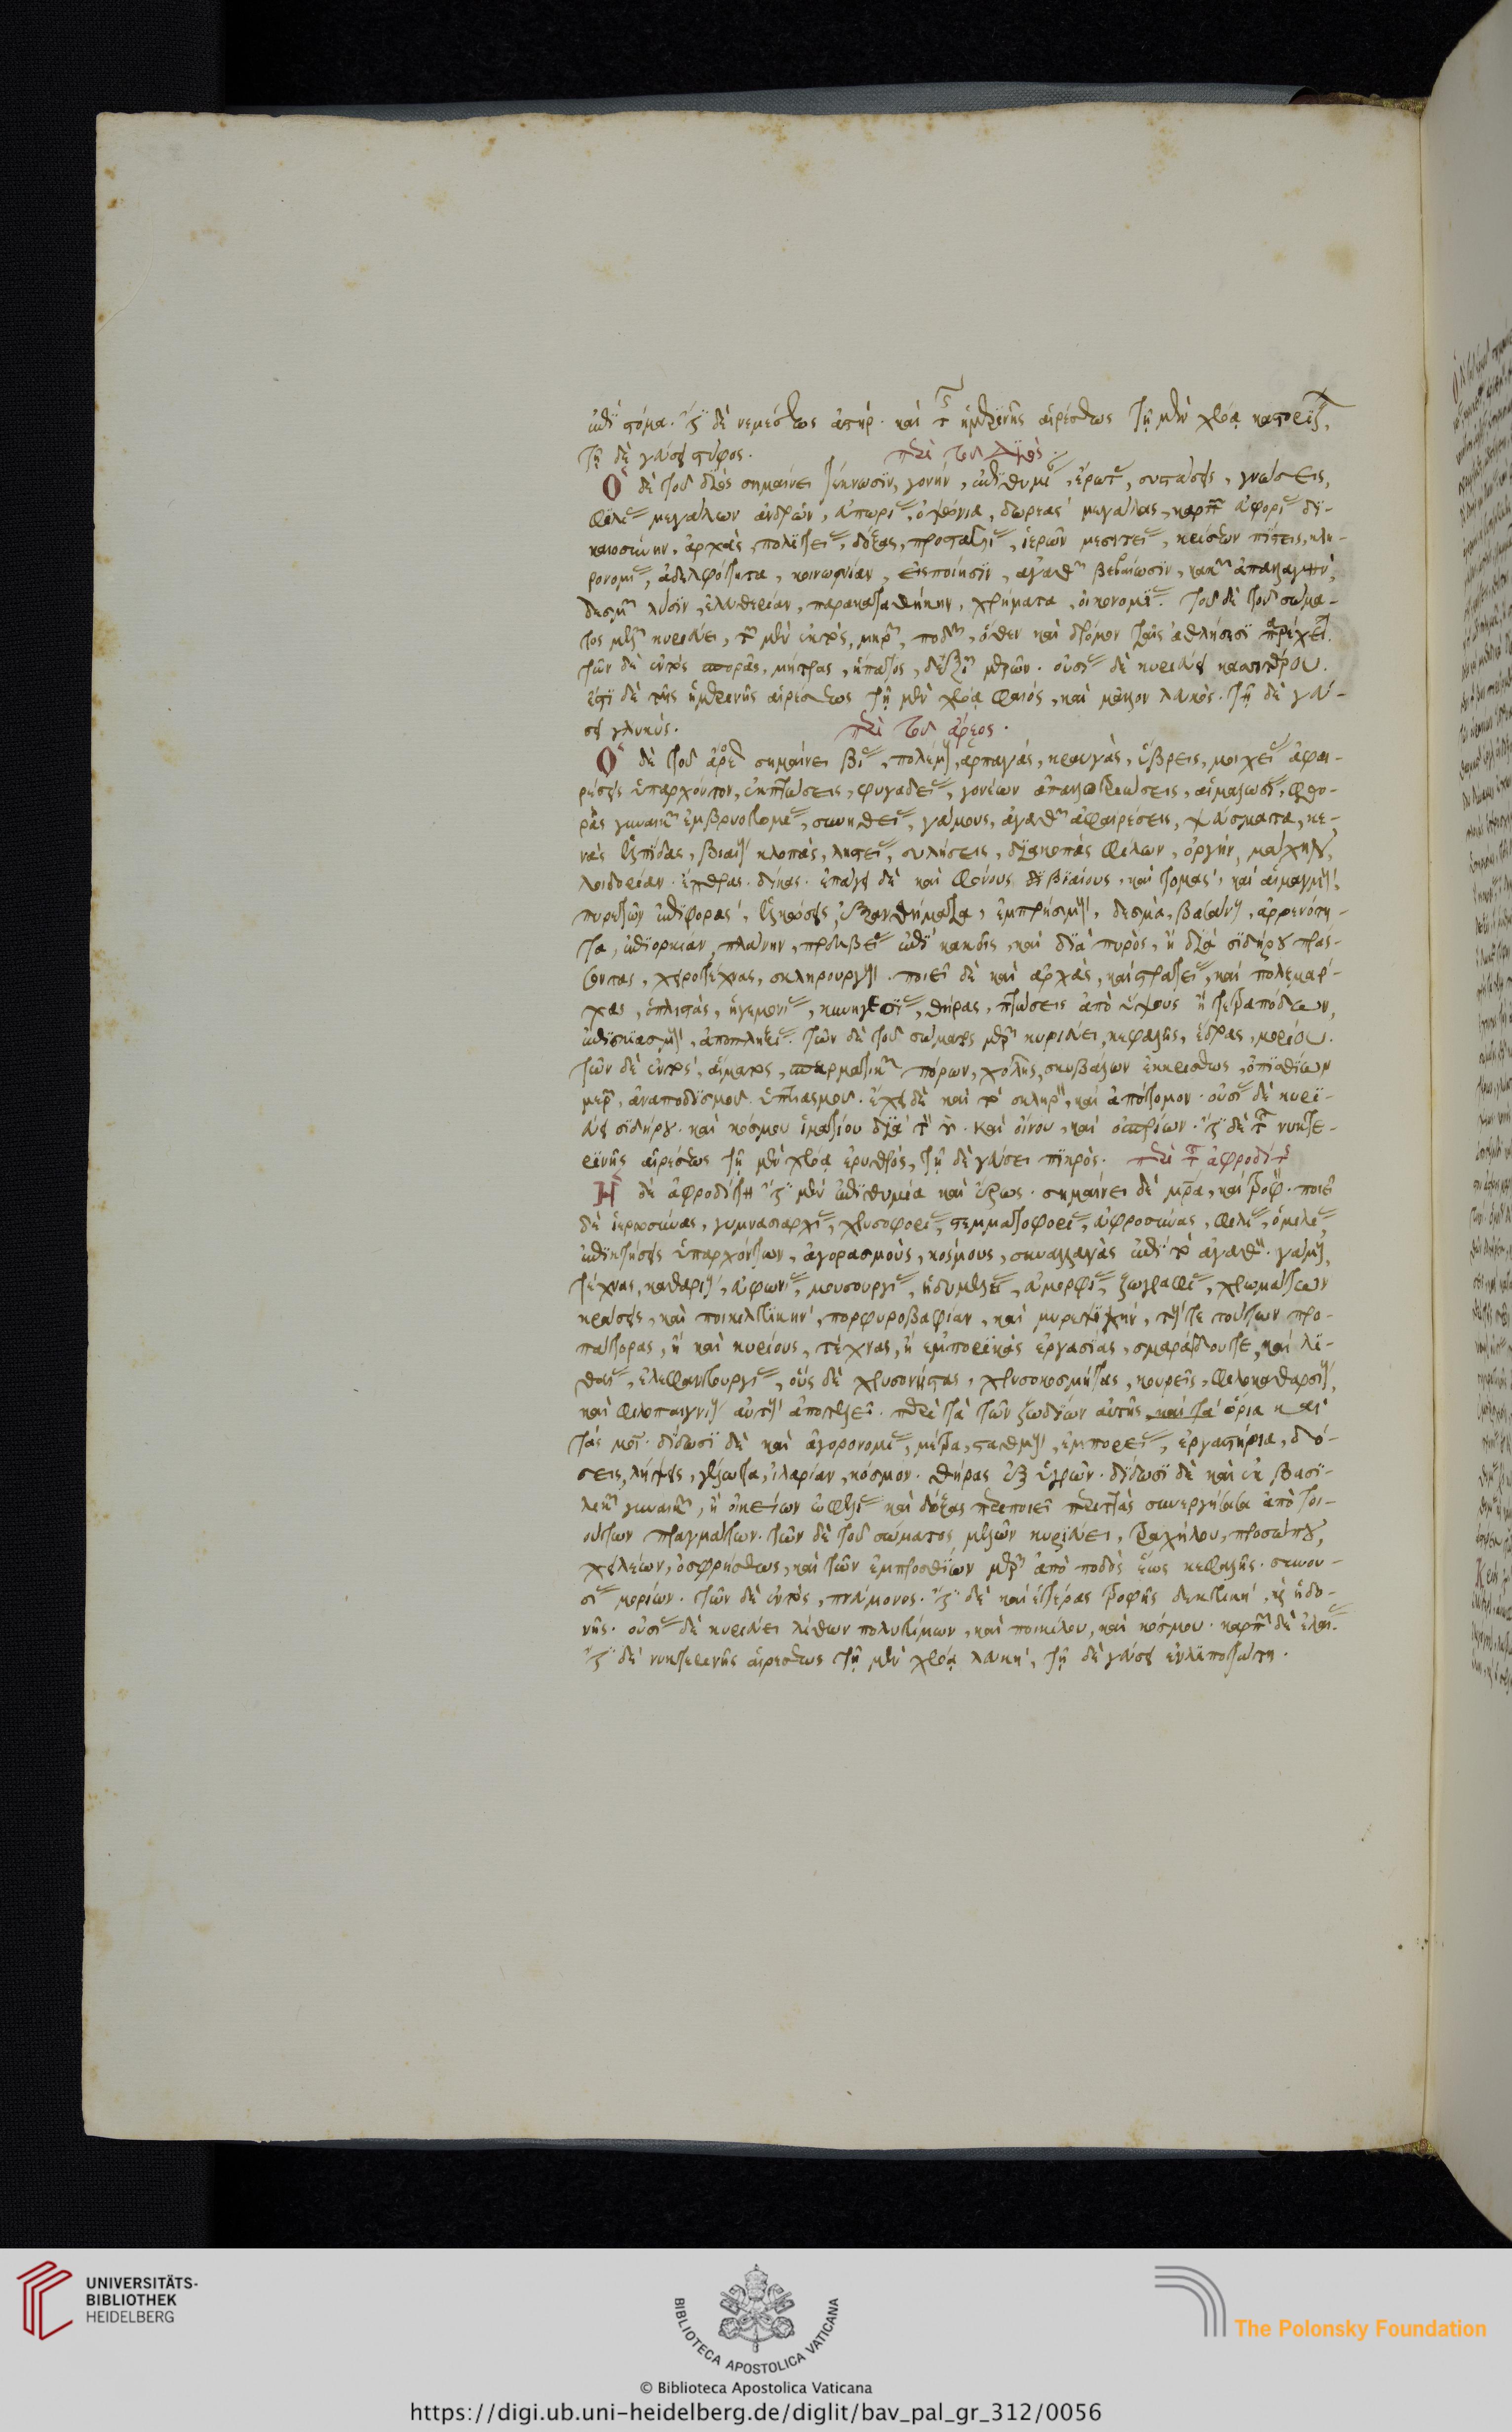 τῇ δὲ γεύσει στύφος. περὶ τοῦ Διός
Ὁ δὲ τοῦ διὸς σημαίνει τέκνωσιν, γονήν, ἐπιθυμίαν, ἔρωτας, συστάσεις, γνώσεις,
φιλίας μεγάλων ἀνδρῶν, εὐπορίας, ὀψώνια, δωρεὰς μεγάλας, καρπῶν εὐφορίας, δι-
καιοσύνην, ἀρχάς, πολιτείας, δόξας, προστασίας, ἱερῶν μεσιτείας, κρίσεων πίστεις, κλη-
ρονομίας, ἀδελφότητα, κοινωνίαν, εἰσποίησιν, ἀγαθῶν βεβαίωσιν, κακῶν ἀπαλλαγήν,
δεσμῶν λύσιν, ἐλευθερίαν, παρακαταθήκην, χρήματα, οἰκονομίας. τοῦ δὲ τοῦ σώμα-
τος μελῶν κυριεύει, τῶν μὲν ἐκτὸς, μηρῶν, ποδῶν, ὅθεν καὶ δρόμον ταῖς ἀθλήσεσι παρέχει.
τῶν δὲ ἐντὸς σπορᾶς, μήτρας, ἥπατος, δεξιῶν μερῶν. οὐσίας δὲ κυριεύει κασσιτέρου.
ἐστὶ δὲ τῆς ἡμερινῆς αἱρέσεως τῇ μὲν χρόᾳ φαιός, καὶ μᾶλλον λευκός. τῇ δὲ γεύ-
σει γλυκύς. περὶ τοῦ ἄρεος.
Ὁ δὲ τοῦ ἄρεος σημαίνει βίας, πολέμους, ἁρπαγάς, κραυγάς, ὕβρεις, μοιχείας, ἀφαι-
ρέσεις ὑπαρχόντων, ἐκπτώσεις, φυγαδείας, γονέων ἀπαλλοτριώσεις, αἰχμαλωσίας, φθο-
ρὰς γυναικῶν, ἐμβρυοτομίας, συνηθείας, γάμους, ἀγαθῶν ἀφαιρέσεις, ψεύσματα, κε-
νὰς ἐλπίδας, βιαίους κλοπάς, λῃστείας, συλήσεις, διακοπὰς φίλων, ὀργήν, μάχην,
λοιδορίαν, ἔχθρας, δίκας. ἐπάγει δὲ καὶ φόνους βιαίους, καὶ τομάς, καὶ αἱμαγμούς,
πυρετῶν ἐπιφοράς, ἑλκώσεις, ἐξανθήματα, ἐμπρησμούς, δεσμά, βασάνους, ἀρρενότη-
τα, ἐπιορκίαν, πλάνην, πρεσβείας ἐπὶ κακοῖς, καὶ διὰ πυρὸς, ἢ διὰ σιδήρου πράσ-
σοντας, χειροτέχνας, σκληρουργούς. ποιεῖ δὲ καὶ ἀρχάς, καὶ στρατείας, καὶ πολεμάρ-
χας, ὁπλίτας, ἡγεμονίας, κυνηγεσίας, θήρας, πτώσεις ἀπὸ ὕψους ἢ τετραπόδων,
ἐπισκιασμούς, ἀποπληξίας. τῶν δὲ τοῦ σώματος μερῶν κυριεύει, κεφαλῆς, ἕδρας, μορίου.
τῶν δὲ ἐντός, αἵματος, σπερματικῶν πόρων, χολῆς, σκυβάλων ἐκκρίσεως, ὀπισθίων
μερῶν, ἀναποδισμοῦ, ὑπτιασμοῦ. ἔχει δὲ καὶ τὸ σκληρὸν, καὶ ἀπότομον. οὐσίας δὲ κυρι-
εύει σιδήρου. καὶ κόσμου ἱματίου διὰ τὸν κριὸν. καὶ οἴνου, καὶ ὀσπρίων. ἔστι δὲ τῆς νυκτε-
ρινῆς αἱρέσεως τῇ μὲν χρόᾳ ἐρυθρός, τῇ δὲ γεύσει πικρός. περὶ τῆς ἀφροδίτης
Ἡ δὲ ἀφροδίτη ἔστι μὲν ἐπιθυμία καὶ ἔρως. σημαίνει δὲ μητέρα, καὶ τροφόν. ποιεῖ
δὲ ἱερωσύνας, γυμνασιαρχίας, χρυσοφορίας, στεμματοφορίας, εὐφροσύνας, φιλίας, ὁμιλίας
ἐπικτήσεις ὑπαρχόντων, ἀγορασμούς, κόσμους, συναλλαγὰς ἐπὶ τὸ ἀγαθόν. γάμους,
τέχνας, καθαρίους, εὐφωνίας, μουσουργίας, ἡδυμελείας, εὐμορφίας, ζωγραφίας, χρωμάτων
κράσεις, καὶ ποικιλτικήν, πορφυροβαφίαν, καὶ μυρεψικήν, τούς τε τούτων προ-
πάτορας, ἢ καὶ κυρίους, τέχνας, ἢ ἐμπορικὰς ἐργασίας, σμαράγδου τε, καὶ λι-
θείας, ἐλεφαντουργίας, οὓς δὲ χρυσονήστας, χρυσοκοσμήτας, κουρεῖς, φιλοκαθαρσίους,
καὶ φιλοπαιγνίους αὐτοὺς ἀποτελεῖ. περὶ τὰ τῶν ζωδίων αὐτῆς καὶ τὰ ὅρια καὶ
τὰς μοίρας. δίδωσι δὲ καὶ ἀγορονομίας, μέτρα, σταθμούς, ἐμπορείας, ἐργαστήρια, δό-
σεις, λήψεις, γέλωτα, ἱλαρίαν, κόσμον. θήρας ἐξ ὑγρῶν. δίδωσι δὲ καὶ ἐκ βασι-
λικῶν γυναικῶν, ἢ οἰκείων ὠφελείας καὶ δόξας περιποιεῖ περιττὰς συνεργήσασα ἀπὸ τοι-
ούτων πραγμάτων. τῶν δὲ τοῦ σώματος μελῶν κυριεύει, τραχήλου, προσώπου,
χειλέων, ὀσφρήσεως, καὶ τῶν ἐμπροσθίων μερῶν ἀπὸ ποδὸς ἕως κεφαλῆς. συνου-
σίας μορίων. τῶν δὲ ἐντὸς, πνεύμονος. ἔστι δὲ καὶ ἑτέρας τροφῆς δεκτική, καὶ ἡδο-
νῆς. οὐσίας δὲ κυριεύει λίθων πολυτίμων, καὶ ποικίλου, καὶ κόσμου. καρπῶν δὲ ἐλαίας.
ἔστι δὲ νυκτερινῆς αἱρέσεως τῇ μὲν χρόᾳ λευκή, τῇ δὲ γεύσει ἐνλιποτάτη.
UNIVERSITÄTS-
BIBLIOTHEK
HEIDELBERG
BIBLIOTECA APOSTOLICA VATICANA
The Polonsky Foundation
© Biblioteca Apostolica Vaticana
https://digi.ub.uni-heidelberg.de/diglit/bav_pal_gr_312/0056